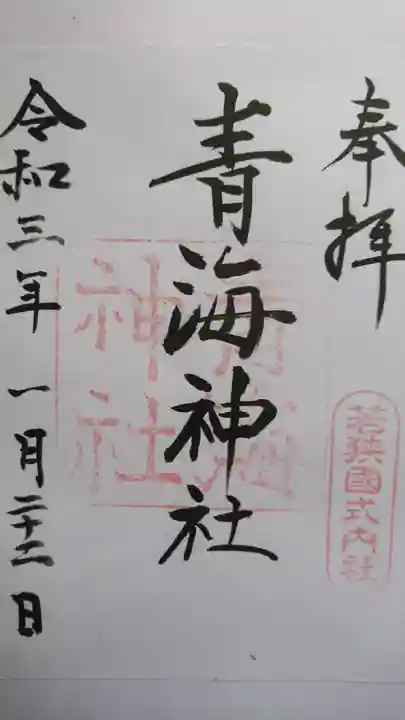 奉拝
若狭國式内社
青海神社
青海神社
令和三年一月二十二日